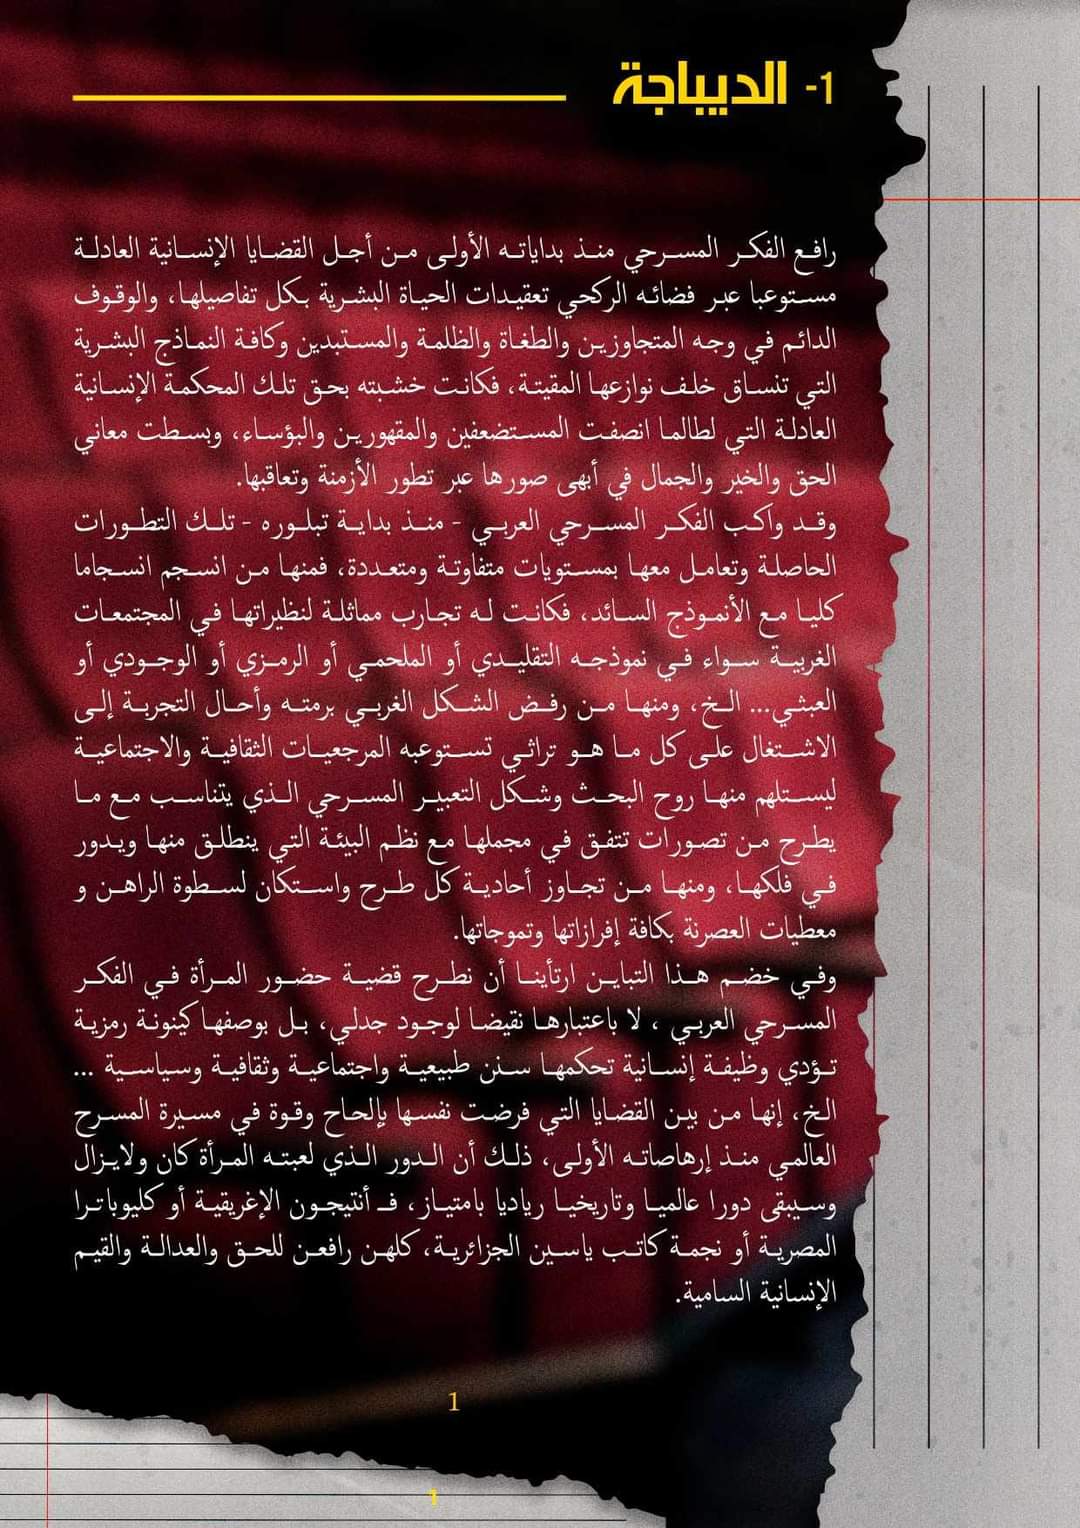 1- الديباجة
رافع الفكر المسرحي منذ بداياته الأولى من أجل القضايا الإنسانية العادلة
مستوعبا عبر فضائه الركحي تعقيدات الحياة البشرية بكل تفاصيلها، والوقوف
الدائم في وجه المتجاوزين والطغاة والظلمة والمستبدين وكافة النماذج البشرية
التي تنساق خلف نوازعها المقيتة، فكانت خشبته بحق تلك المحكمة الإنسانية
العادلة التي لطالما انصفت المستضعفين والمقهورين والبؤساء، وبسطت معاني
الحق والخير والجمال في أبهى صورها عبر تطور الأزمنة وتعاقبها.
وقد واكب الفكر المسرحي العربي - منذ بداية تبلوره - تلك التطورات
الحاصلة وتعامل معها بمستويات متفاوتة ومتعددة، فمنها من انسجم انسجاما
كليا مع الأنموذج السائد، فكانت له تجارب مماثلة لنظيراتها في المجتمعات
الغربية سواء في نموذجه التقليدي أو الملحمي أو الرمزي أو الوجودي أو
العبثي... الخ، ومنها من رفض الشكل الغربي برمته وأحال التجربة إلى
الاشتغال على كل ما هو تراثي تستوعبه المرجعيات الثقافية والاجتماعية
ليستلهم منها روح البحث وشكل التعبير المسرحي الذي يتناسب مع ما
يطرح من تصورات تتفق في مجملها مع نظم البيئة التي ينطلق منها ويدور
في فلكها، ومنها من تجاوز أحادية كل طرح واستكان لسطوة الراهن و
معطيات العصرنة بكافة إفرازاتها وتموجاتها.
وفي خضم هذا التباين ارتأينا أن نطرح قضية حضور المرأة في الفكر
المسرحي العربي ، لا باعتبارها نقيضا لوجود جدلي، بل بوصفها كينونة رمزية
تؤدي وظيفة إنسانية تحكمها سنن طبيعية واجتماعية وثقافية وسياسية ...
الخ، إنها من بين القضايا التي فرضت نفسها بإلحاح وقوة في مسيرة المسرح
العالمي منذ إرهاصاته الأولى، ذلك أن الدور الذي لعبته المرأة كان ولايزال
وسيبقى دورا عالميا وتاريخيا رياديا بامتياز، فـ أنتيجون الإغريقية أو كليوباترا
المصرية أو نجمة كاتب ياسين الجزائرية، كلهن رافعن للحق والعدالة والقيم
الإنسانية السامية.
1
1